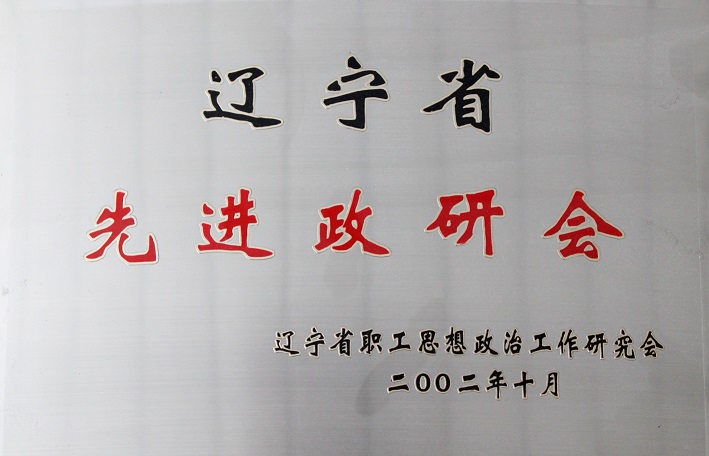 辽宁省
先进政研会
辽宁省职工思想政治工作研究会
二00二年十月